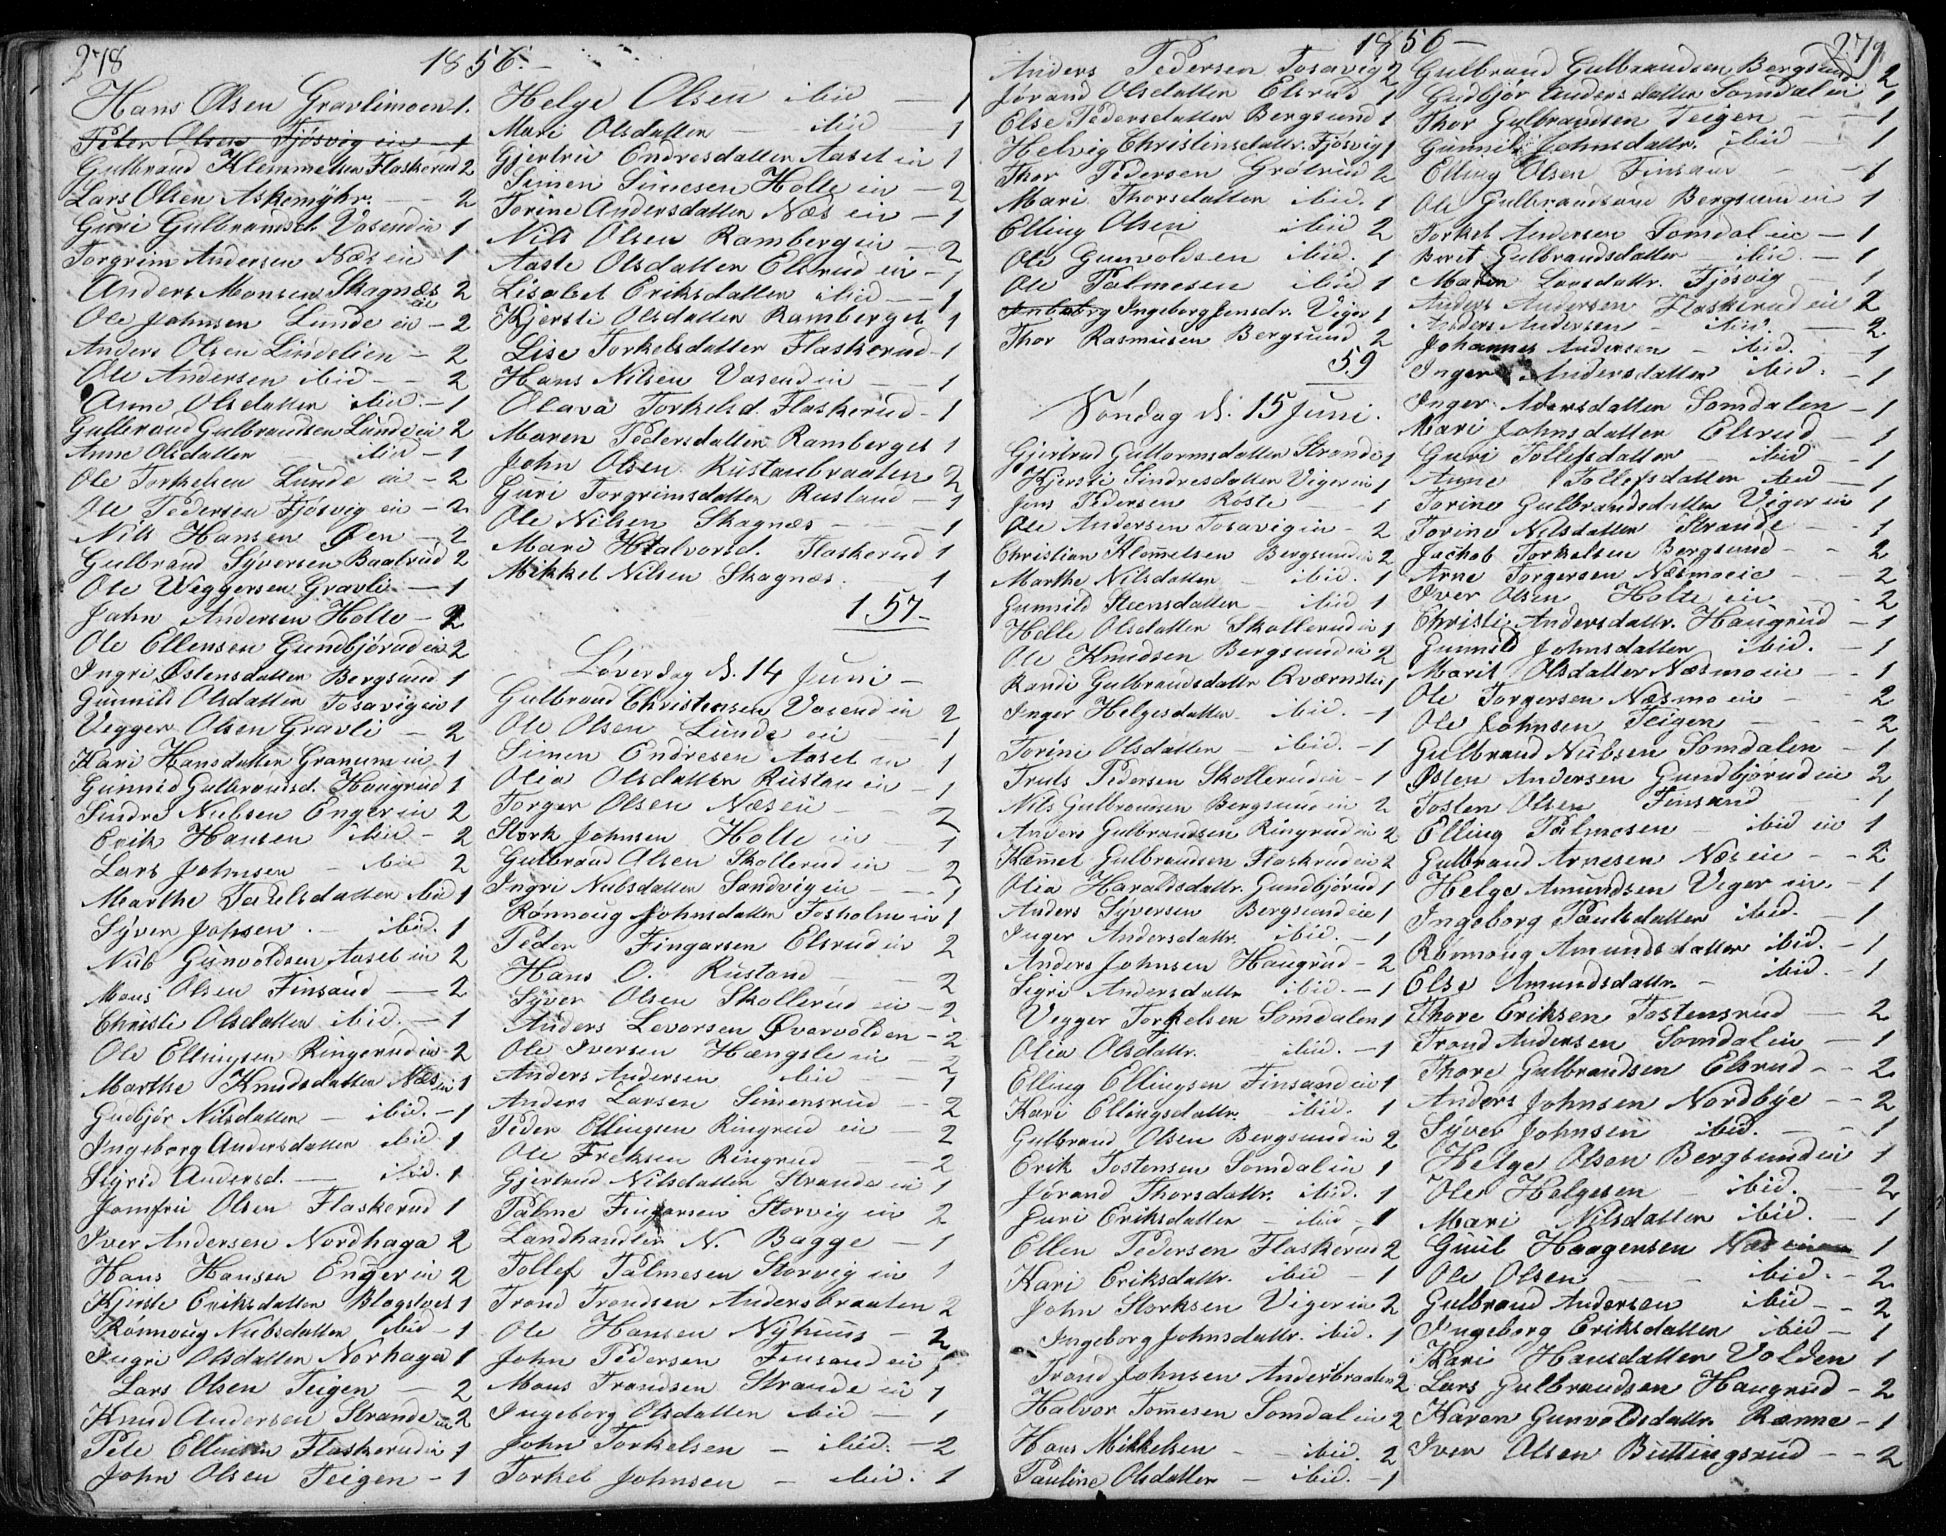 278
1856.-
Hans Olsen Gravlimoen 1.
Peter Olsen Fjösvig ein 1
Gulbrand Klemmetsen Flaskerud 2
Lars Olsen Askemÿhr. - - 2
Guri Gulbrandsd. Vasend ein 1
Torgrim Andersen Næs ein 1
Anders Monsen Skagnæs ein 2
Ole Johnsen Lunde ein - 2
Anders Olsen Lindelien - 2
Ole Andersen ibid - - 2
Anne Olsdatter ibid. - 1
Gulbrand Gulbrandsen Lunde ein 2
Anne Olsdatter ibid - 1
Ole Torkelsen Lunde ein - 2
Ole Pedersen Fjösvig ein - 2
Nils Hansen Øen - 2
Gulbrand Sÿversen Baalrud 2
Ole Veggersen Gravli - 1
John Andersen Holte - 2
Ole Ellensen Gundbjørud ein 2
Ingri Østensdatter Bergsund 1
Gunnild Olsdatter Tosavig ein 1
Vegger Olsen Gravli - 2
Kari Hansdatter Granum ein 1
Gunnild Gulbrandsd. Haugrud 1
Sindre Nubsen Enger ein 2
Erik Hansen ibid - 2
Lars Johnsen - ibid 2
Marthe Torkelsdatter ibid 1
Sÿver Johsen. - ibid. 1
Nub Gunvoldsen Aaset ein 2
Mons Olsen Finsand - 2
Christi Olsdatter ibid. - 1
Ole Ellingsen Ringerud ein 2
Marthe Knudsdatter Næs ein 1
Gudbjør Nilsdatter - ibid. - 1
Ingeborg Andersdatter ibid. 1
Sigrid Andersd. - ibid. 1
Jomfru Olsen Flaskerud 1
Iver Andersen Nordhaga 2
Hans Hansen Enger ein 2
Kjersti Eriksdatter Blagstvet 1
Rönnoug Nubsdatter ibid - 1
Ingri Olsdatter Norhaga 1
Lars Olsen Teigen - 2
Knud Andersen Strande ein 2
Pete Ellensen Flaskerud ein 1
John Olsen Teigen - 1
Helge Olsen ibid - 1
Mari Olsdatter - ibid - 1
Gjertrud Endresdatter Aaset ein 1
Simen Simesen Holte ein - 2
Torine Andersdatter Næs ein - 1
Nils Olsen Ramberg ein - 2
Aaste Olsdatter Elsrud ein - 1
Lisabet Eriksdatter ibid - - 1
Kjersti Olsdatter Ramberget 1
Lise Torkelsdatter Flaskerud - 1
Hans Nilsen Vasend ein - - 1
Olava Torkelsd. Flaskerud - 1
Maren Pedersdatter Ramberget 1
John Olsen Rustanbraaten 2
Guri Torgrimsdatter Rustand - 1
Ole Nilsen Skagnæs - - - 1
Mari Halvorsd. Flaskerud 1
Mikkel Nilsen Skagnæs. 1
157-
Løverdag d. 14 Juni -
Gulbrand Christensen Vasend ein 2
Ole Olsen Lunde ein - 1
Simen Endresen Aaset ein 1
Olia Olsdatter Rustan ein - 1
Torger Olsen Næs ein - - 2
Stork Johnsen Holte ein - 1
Gulbrand Olsen Skollerud ein 2
Ingri Nubsdatter Sandvig ein - - 1
Rønnoug Johnsdatter Fosholm ein 1
Peder Fingarsen Elsrud ein 2
Hans O. Rustand - 2
Sÿver Olsen Skollerud ein - 2
Anders Levorsen Øvervolden - 2
Ole Iversen Hængsle ein - 2
Anders Andersen ibid - - 1
Anders Larsen Semensrud - - 2
Peder Ellingsen Ringrud ein - 2
Ole Freksen Ringrud - - 2
Gjertrud Nilsdatter Strande ein 1
Palme Fingarsen Storvig ein 2
Landhandler N. Bagge - 1
Tollef Palmesen Storvig ein 1
Trond Trondsen Andersbraaten 2
Ole Hansen Nÿhuus - 2
John Pedersen Finsand ein 1
Mons Trondsen Strande ein 1
Ingeborg Olsdatter ibid - 1
John Torkelsen - ibid. - 2
Torkel Johnsen - ibid. 1
1856-
279
Anders Pedersen Tosavig 2
Jørand Olsdatter Elsrud 1
Else Pedersdatter Bergsund 1
Helvig Christinsdattr. Fjösvig 1
Thor Pedersen Grøtrud 2
Mari Thorsdatter ibid. 1
Elling Olsen ibid 2
Ole Gunvoldsen ibid. 1
Ole Palmesen ibid 1
Ingeborg Jonsdr. Viger 1
Thor Rasmusen Bergsund 2
59
Søndag d. 15 Juni.
Gjertrud Guttormsdatter Strande 1
Kjersti Sindresdatter Viger ein 1
Jens Pedersen Røste - - 1
Ole Andersen Tosavig ein - 2
Christian Klom̃etsen Bergsund ein 2
Marthe Nilsdatter - ibid. 1
Gunnild Steensdatter - ibid 1
Helle Olsdatter Skollerud ein 1
Ole Knudsen Bergsund ein 2
Randi Gulbrandsdattr Qværnstu 1
Inger Helgesdatter - ibid. - 1
Torine Olsdatter - ibid. - 1
Truls Pedersen Skollerud ein - 1
Nils Gulbrandsen Bergsund ein 2
Anders Gulbrandsen Ringrud ein 2
Kæm̃et Gulbrandsen Flaskrud ein 2
Olia Haraldsdattr. Gundbjørud 1
Anders Sÿversen Bergsund ein 1
Inger Andersdattr. ibid. - 1
Anders Johnsen Haugrud - 2
Sigri Andersdattr ibid. - 1
Vegger Torkelsen Somdalen 1
Olia Olsdattr. ibid. - 1
Elling Ellingsen Finsand ein 1
Kari Ellingsdattr. ibid. 1
Gulbrand Olsen Bergsund ein 2
Erik Tostensen Somdal ein 1
Jørand Thorsdattr. ibid. 1
Guri Eriksdatter - ibid - 1
Ellen Pedersen Flaskerud 2
Kari Eriksdattr. ibid - 1
John Storksen Viger ein 2
Ingeborg Johnsdattr. ibid. 1
Trond Johnsen Andersbraaten 2
Halvor Tom̃esen Somdal ein 2
Hans Mikkelsen - - ibid. 2
Pauline Olsdatter - ibid. - 1
Gulbrand Gulbrandsen Bergsund 2
Gudbjør Andersdatter Somdal ein 1
Thor Gulbransen Teigen - - 1
Gunnild Johnsdattr. ibid - 1
Elling Olsen Finsand - - 1
Ole Gulbrandsen Bergsund ein 1
Torkel Andersen Somdal ein - 1
Berit Gulbrandsdatter - ibid. - 1
Maren Larsdattr. Fjösvig - 1
Anders Andersen Flaskerud ein 2
Anders Andersen - ibid. - 2
Johannes Andersen - ibid. - 1
Inger Andersdatter ibid. - 1
Inger Adersdatter Somdalen - 1
Mari Johnsdatter Elsrud - 1
Guri Tollefsdatter - ibid - 1
Anne Tollefsdatter ibid - 1
Torine Gulbrandsdatter Viger ein 1
Torine Nilsdatter Strande - - 1
Jachob Torkelsen Bergsund - - 2
Arne Torgersen Næsmoeie - - 2
Iver Olsen Holte ein - - 2
Christi Andersdattr. Haugrud - 1
Gunnild Johnsdatter ibid. - 1
Marit Olsdatter Næsmoein - - 1
Ole Torgersen Næsmoein - 2
Ole Johnsen Teigen - - - 2
Gulbrand Nubsen Somdalen - 1
Østen Andersen Gundbjørud ein 2
Tosten Olsen Finsand - 1
Elling Palmesen - ibid ein 1
Gulbrand Arnesen Næs eie - - 2
Helge Amundsen Viger ein. - 1
Ingeborg Paulsdatter ibid. - 1
Rønnoug Amundsdatter ibid. - 1
Else Amundsdattr. ibid. - 1
Thore Eriksen Tostensrud - 2
Trond Andersen Somdal ein - 1
Thore Gulbrandsen Elsrud - - 2
Anders Johnsen Nordbÿe - - 2
Sÿver Johnsen ibid. - - 1
Helge Olsen Bergsund ein 1
Ole Helgesen - ibid. - 2
Mari Nilsdatter ibid. - 1
Guul Haagensen Næs ein 1
Ole Olsen - - ibid. - 2
Gulbrand Andersen ibid - - 2
Ingeborg Eriksdatter ibid - 1
Kari Hansdatter Volden 1
Lars Gulbrandsen Haugrud - 2
Karen Gunvoldsdattr. Rænne - 1
Iver Olsen Buttingsrud - - 2